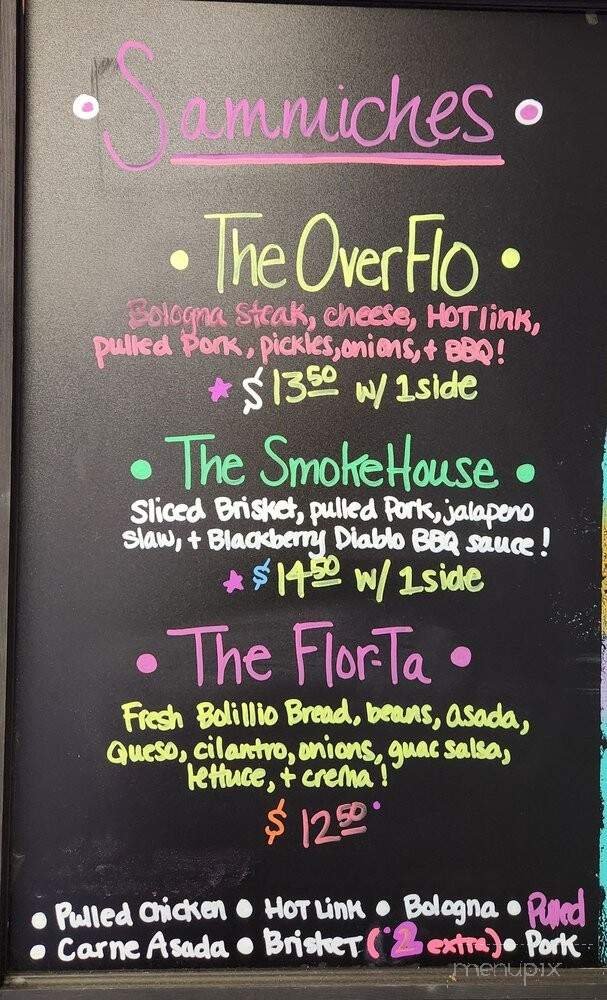 Sammiches
• The OverFlo •
Bologna Steak, cheese, HOT link,
pulled Pork, pickles, onions, + BBQ!
★ $13.50 w/ 1 side
• The SmokeHouse •
Sliced Brisket, pulled Pork, jalapeno
slaw, + Blackberry Diablo BBQ sauce!
★ $14.50 w/ 1 side
• The Flor-Ta •
Fresh Bolillio Bread, beans, asada,
Queso, cilantro, onions, guac salsa,
lettuce, + crema!
$12.50
• Pulled Chicken • HOT Link • Bologna • Pulled
• Carne Asada • Brisket (2 extra) • Pork
menupix